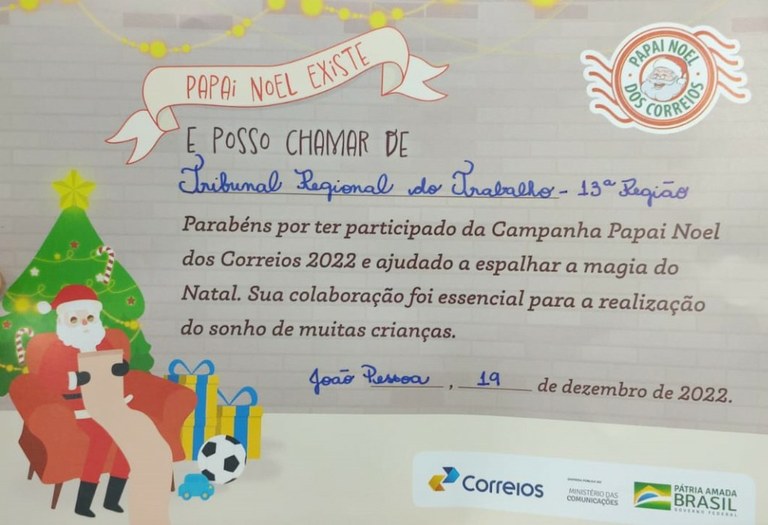 PAPAI NOEL EXISTE
PAPAI NOEL
DOS CORREIOS
E POSSO CHAMAR DE
Tribunal Regional do Trabalho - 13ª Região
Parabéns por ter participado da Campanha Papai Noel
dos Correios 2022 e ajudado a espalhar a magia do
Natal. Sua colaboração foi essencial para a realização
do sonho de muitas crianças.
João Pessoa, 19 de dezembro de 2022.
Correios
MINISTÉRIO DAS
COMUNICAÇÕES
PÁTRIA AMADA
BRASIL
GOVERNO FEDERAL